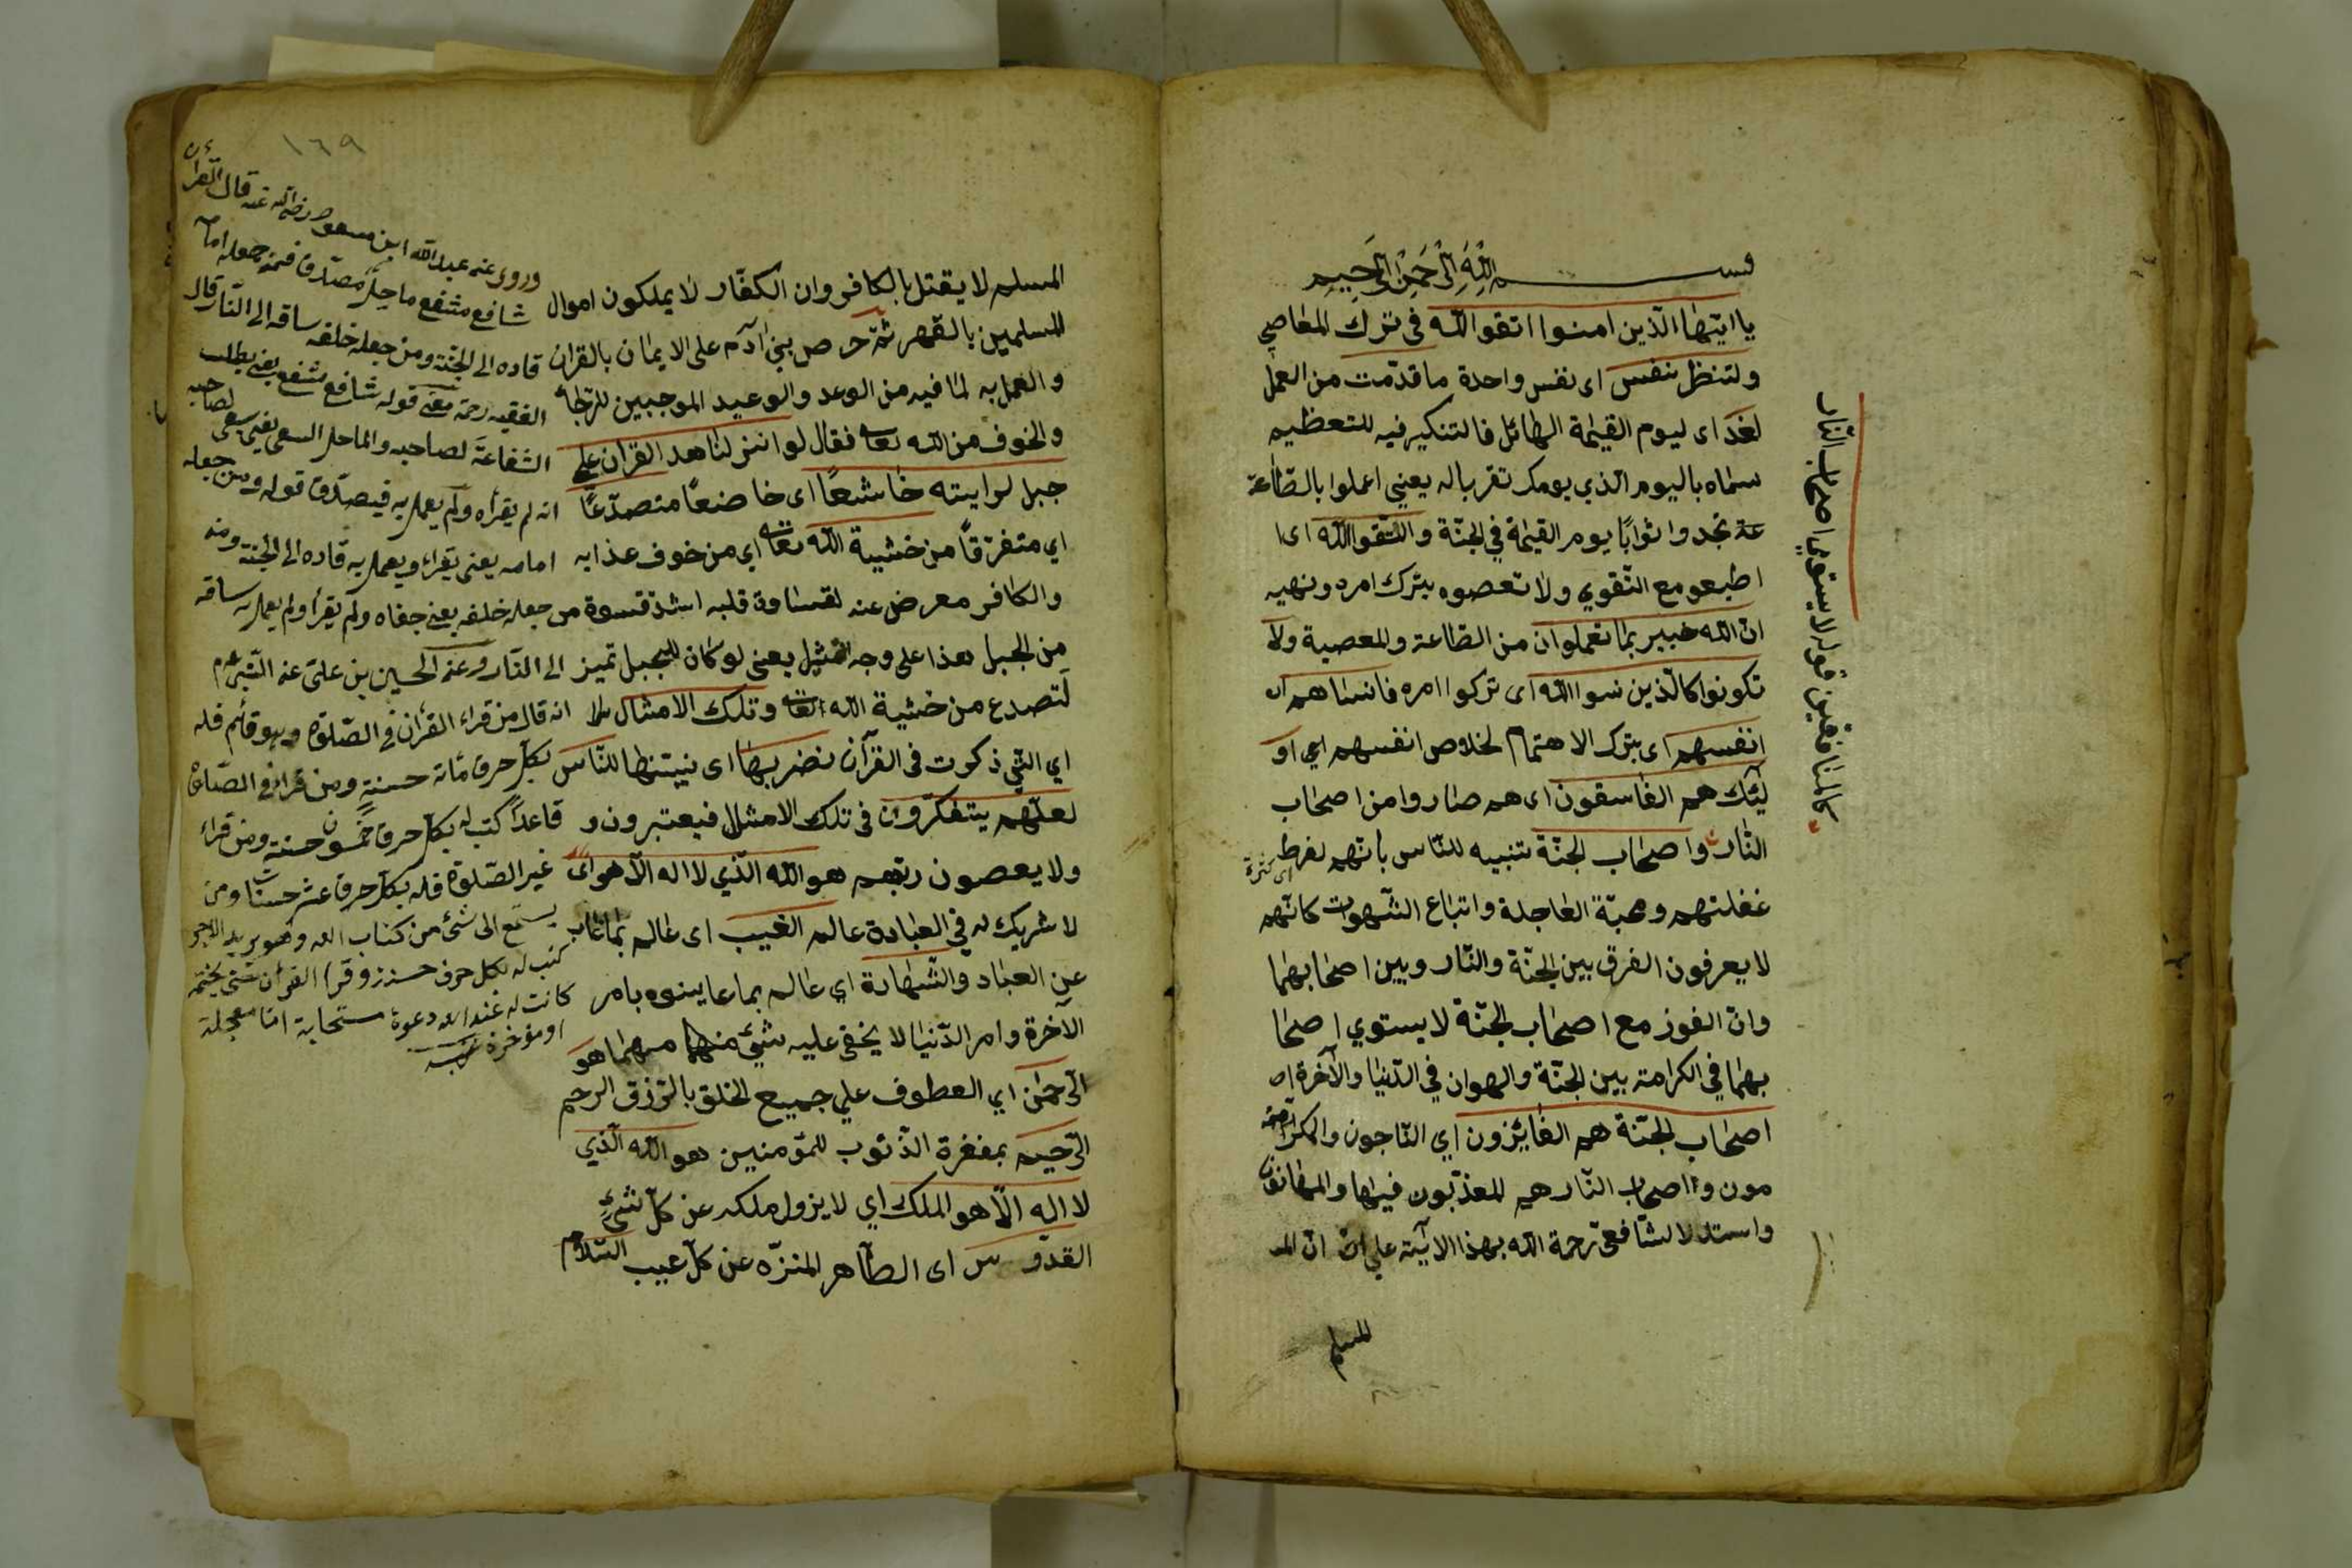 بسم الله الرحمن الرحيم
يا ايتها الذين امنوا اتقوا الله في ترك المعاصي
ولتنظر نفس اى نفس واحدة ما قدّمت من العمل
لغد اى ليوم القيمة الهائل فالتنكير فيه للتعظيم
سماه باليوم الذي يومك تقربا له يعني اعملوا بالطاعة
عة تجدوا ثوابًا يوم القيمة في الجنّة واتقوا الله اى ا
اطيعو مع التقوي ولا تعصوه بترك امره ونهيه
انّ الله خبير بما تعملوان من الطاعة والمعصية ولا
تكونوا كالّذين نسوا الله اى تركوا امره فانساهم ان
انفسهم اى بترك الاهتمام لخلاص انفسهم اي او
ليٓئك هم الفاسقون اى هم صاروا من اصحاب
النّار واصحاب الجنّة تنبيه للنّاس بانّهم لفرط
اى كثرة
غفلتهم ومحبّة العاجلة واتباع الشّهوات كانّهم
لا يعرفون الفرق بين الجنّة والنّار وبين اصحابهما
وانّ الفوز مع اصحاب الجنّة لا يستوي اصحا
بهما في الكرامة بين الجنّة والهوان في الدّنيا والآخرة اص
اصحاب الجنّة هم الفائزون اي النّاجون والمكرّ
مون واصحاب النّار هم المعذّبون فيها والمهانون
واستدلا لشّافعىّ رحمة الله بهذا الآية علي انّ انّ المـ
المسلم
كاملنا فعين قوله لا يستوي اصحاب النّار
١٦٩
المسلم لا يقتل بالكافر وان الكفّار لا يملكون اموال
المسلمين بالقهر ثمّ حرص بني ادٓم على الايمان بالقران
والعمل به لما فيه من الوعد والوعيد الموجبين للرّجاء
والخوف من الله تعا فقال لو انزلنا هذ القران علي
جبل لرايته خاشعًا اى خاضعًا متصدّعًا
اي متفرّقًا من خشية الله تعا اي من خوف عذابه
والكافر معرض عنه لقساوة قلبه اشدّ قسوة
من الجبل هذا علي وجه التمثيل يعنى لو كان للجبل تميز
لتصدع من خشية الله تعا وتلك الامثال
اي التّي ذكرت في القرآن نضربها اى نبيّنها للنّاس
لعلّهم يتفكّرون في تلك الامثال فيعتبرون و
ولا يعصون ربّهم هو الله الّذي لا اله الّا هو اى
لا شريك له في العبادة عالم الغيب اى عالم بما غاب
عن العباد والشّهادة اي عالم بما عاينوه بامر
الآخرة وامر الدّنيا لا يخفي عليه شئ منهما مهما هو
الرّحمن اي العطوف علي جميع الخلق بالرّزق الرحم
الرّحيم بمغفرة الذّنوب للمؤمنين هو الله الّذي
لا اله الّا هو الملك اي لا يزول ملكه عن كلّ شئ
القدّوس اى الطّاهر المنزّه عن كلّ عيب السّلام
وروى عن عبد الله ابن مسعود رضي الله عنه قال القرآن
شافع مشفع ماحل مصدّق فمن جعله امامه
قاده الى الجنّة ومن جعله خلفه ساقه الى النّار قال
الفقيه رحمه معنى قوله شافع مشفع يعنى يطلب
الشفاعة لصاحبه والماحل السعى يعنى يسعى لصاحبه
انه لم يقرأه ولم يعمل به فيصدّق قوله ومن جعله
امامه يعنى يقراء ويعمل به قاده الى الجنة ومن
جعله خلفه يعنى جفاه ولم يقرأ ولم يعمل به ساقه
الى النّار وعن الحسين بن على عن النّبى عم
انه قال من قراء القرأن في الصّلوة وهو قائم فله
بكلّ حرف مائة حسنة ومن قرأ في الصّلوة
قاعداً كتب له بكلّ حرف خمسون حسنة ومن قراء
غير الصّلوة فله بكلّ حرف عشر حسنات ومن
يستمع الى شئ من كتاب الله وهو يريد الاجر
كتب له بكل حرف حسنة ومن قرأ القرأن حتى يختمه
كانت له عند الله دعوة مستجابة امّا معجلة
او مؤخرة